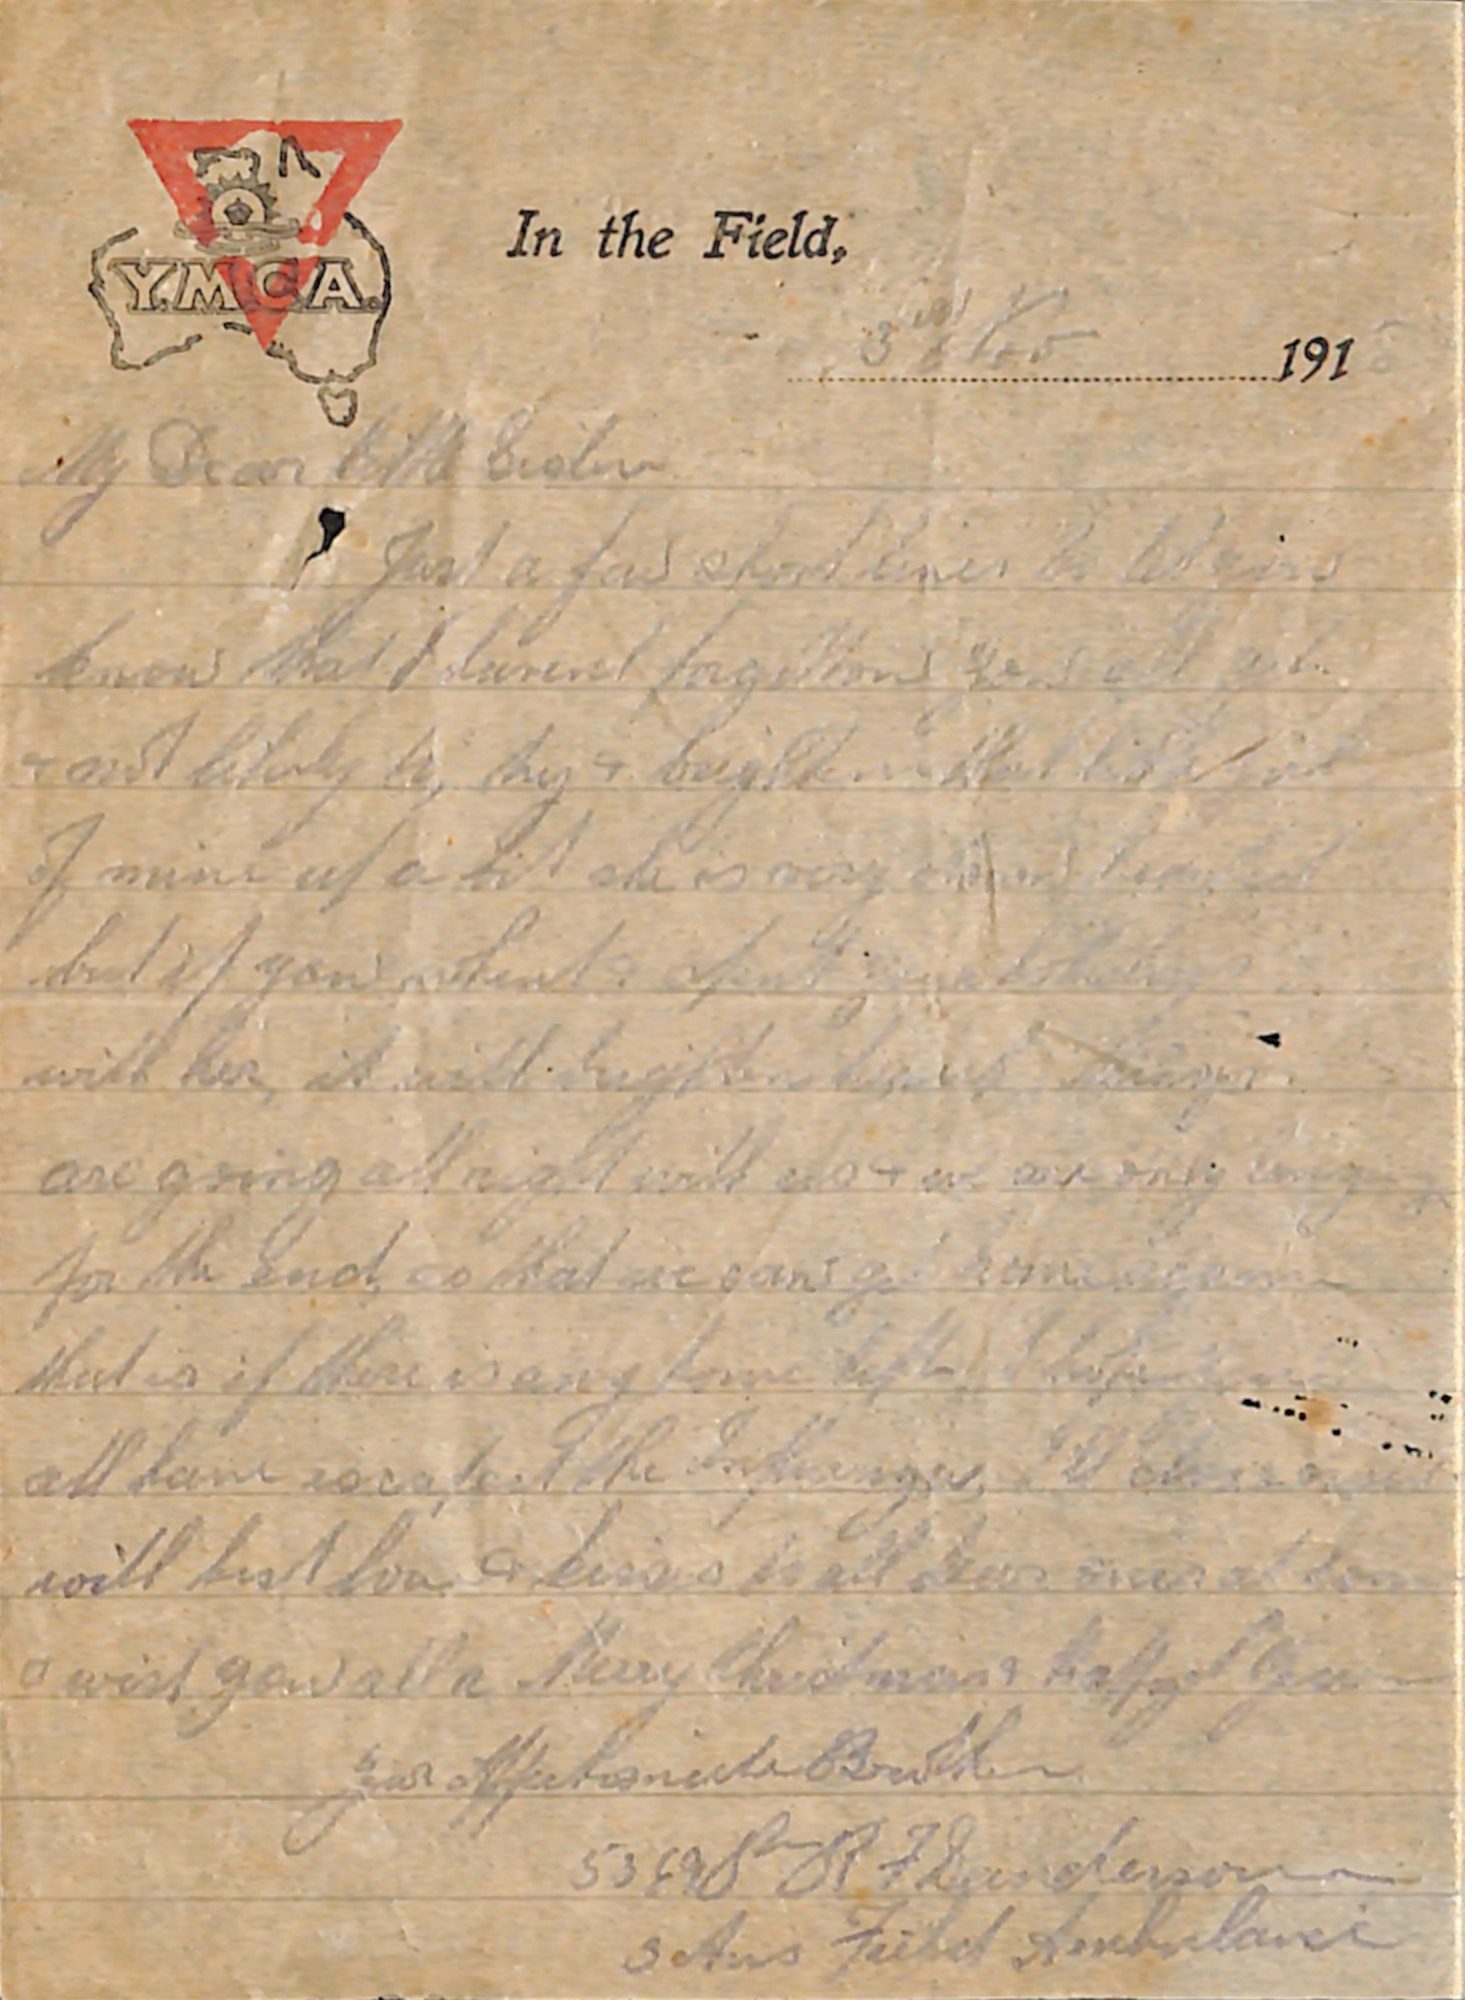 Y.M.C.A.
In the Field,
3 Nov 191
My Dear little Sister
Just a few short lines to let you
know that I havent forgotten you all yet
& not likely to, try & brighten that little girl
of mine up a bit she is very down hearted
but if you went & spent
with her, it will brighten her up. things
are going all right with us & we are only longing
for the end, so that we can get home again
that is if there is any home left, I hope you
all have escaped the Influenza, I'll close now
with best love & kisses to all dear ones at home
& wish you all a Merry Christmas & happy New Year
your Affectionate Brother
5369 Pte R F Sanderson
3 Aus Field Ambulance